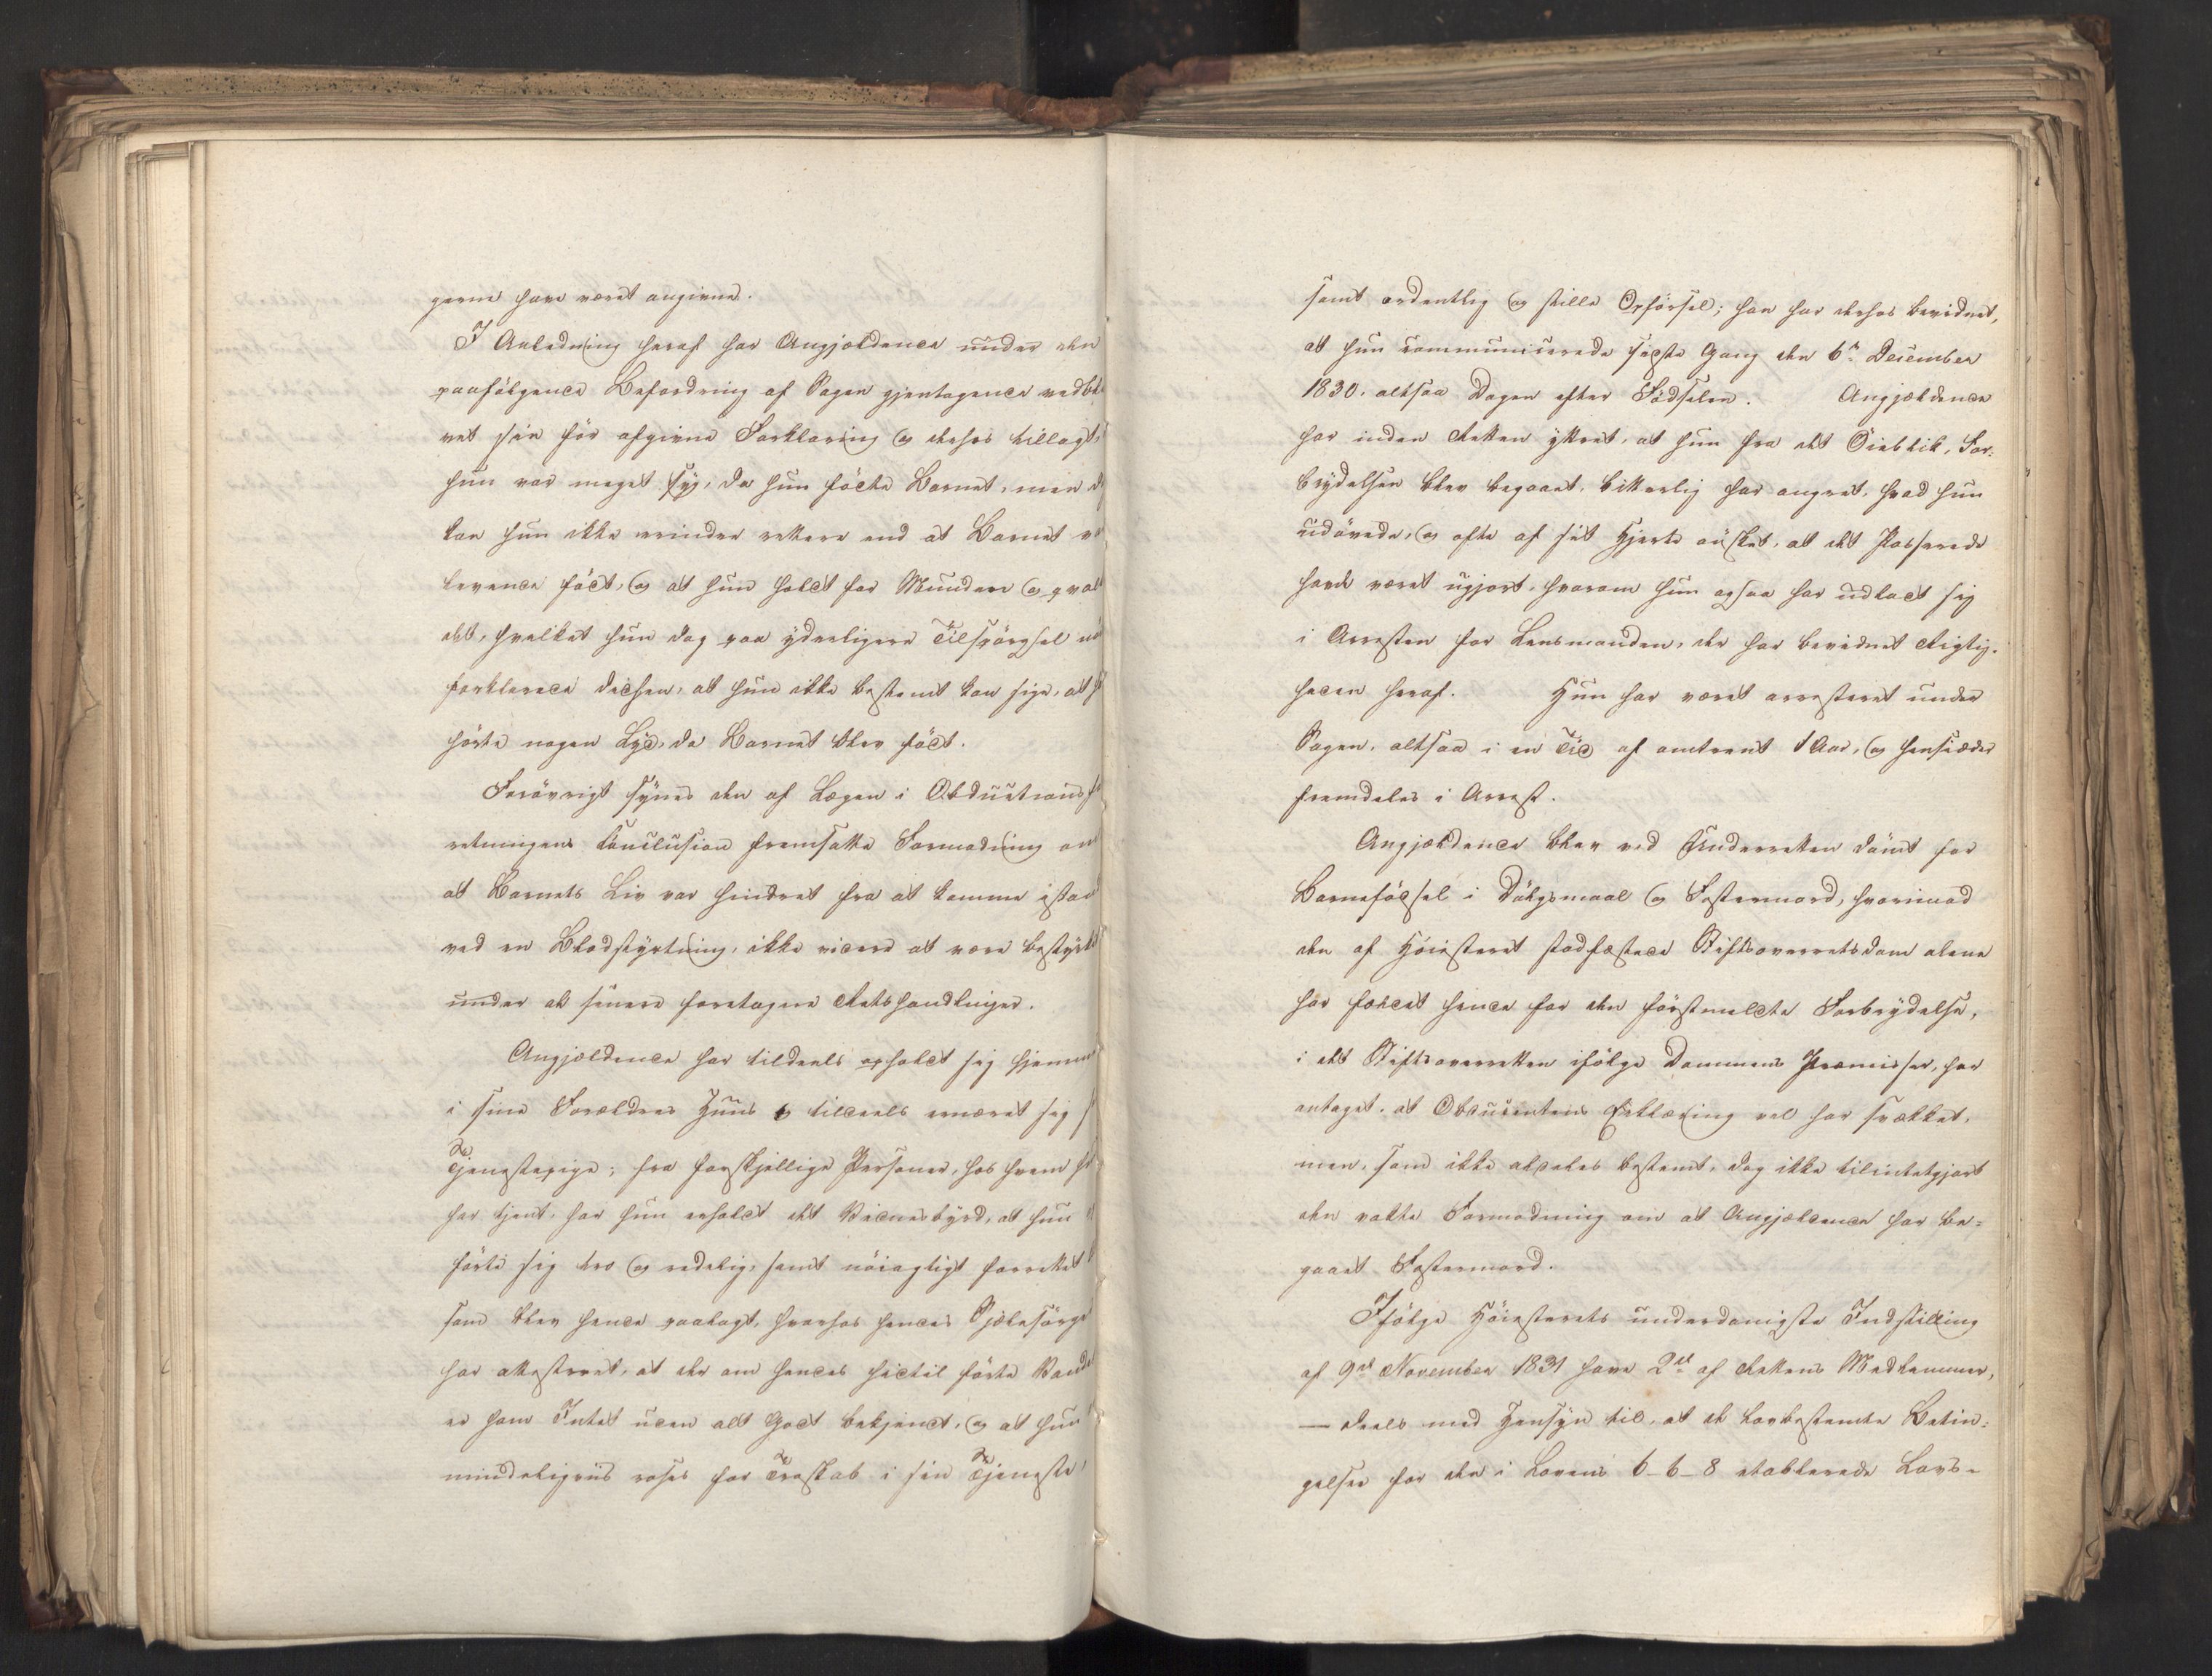 gerne have været angivne.
I Anledning heraf har Angjældende under den
paafølgende Befordring af Sagen gjentagende vedble
vet sin før afgivne Forklaring og derhos tillagt,
hun var meget syg, da hun fødte Barnet, men
kan hun ikke erindre rettere end at Barnet
levende født, og at hun holdt for Munden og qval
det, hvilket hun dog paa yderligere Tilspørgsel
forklarede derhen, at hun ikke bestemt kan sige, at
hørte nogen Lyd, da Barnet blev født.
Forøvrigt synes den af Lægen i Obductions
retningens Conclusion fremsatte Formodning om
at Barnets Liv var hindret fra at komme istand
ved en Blodstyrtning, ikke videre at være bestyrket
under de senere foretagne Retshandlinger.
Angjældende har tildeels opholdt sig hjemme
i sine Forældres Huus og tildeels ernæret sig
Tjenestepige; fra forskjellige Personer, hos hvem
har tjent, har hun erholdt det Vidnesbyrd, at hun
førte sig tro og redelig, samt nøiagtigt forrettet
som blev hende paalagt, hvorhos hendes Sjælesørger
har attesteret, at der om hendes hidtil førte Vandel
er ham Intet uden alt Godt bekjendt, og at hun
mindeligviis roses for Troskab i sin Tjeneste,
samt ordentlig og stille Opførsel; han har derhos bevidnet,
at hun communicerede sidste Gang den 6te December
1830. altsaa Dagen efter Fødselen. Angjældende
har inden Retten yttret, at hun fra det Öieblik, For-
brydelsen blev begaaet, bitterlig har angret, hvad hun
udøvede, og ofte af sit Hjerte ønsket, at det Passerede
havde været ugjort, hvorom hun ogsaa har udladt sig
i Arresten for Lensmanden, der har bevidnet Rigtig-
heden heraf. Hun har været arresteret under
Sagen, altsaa i en Tid af omtrent 1 Aar, og hensidder
fremdeles i Arrest.
Angjældende blev ved Underretten dømt for
Barnefødsel i Dølgsmaal og Fostermord, hvorimod
den af Høiesteret stadfæstede Stiftsoverretsdom alene
har fældet hende for den førstmeldte Forbrydelse,
i det Stiftsoverretten ifølge Dommens Præmisser, har
antaget, at Obducentens Erklæring vel har svækket,
men, som ikke aldeles bestemt, dog ikke tilintetgjort
den vakte Formodning om at Angjældende har be-
gaaet Fostermord.
Ifølge Høiesterets underdanigste Indstilling
af 9de November 1831 have 2de af Rettens Medlemmer,
— deels med Hensyn til, at de lovbestemte Betin-
gelser for den i Lovens 6-6-8 etablerede Lovs-